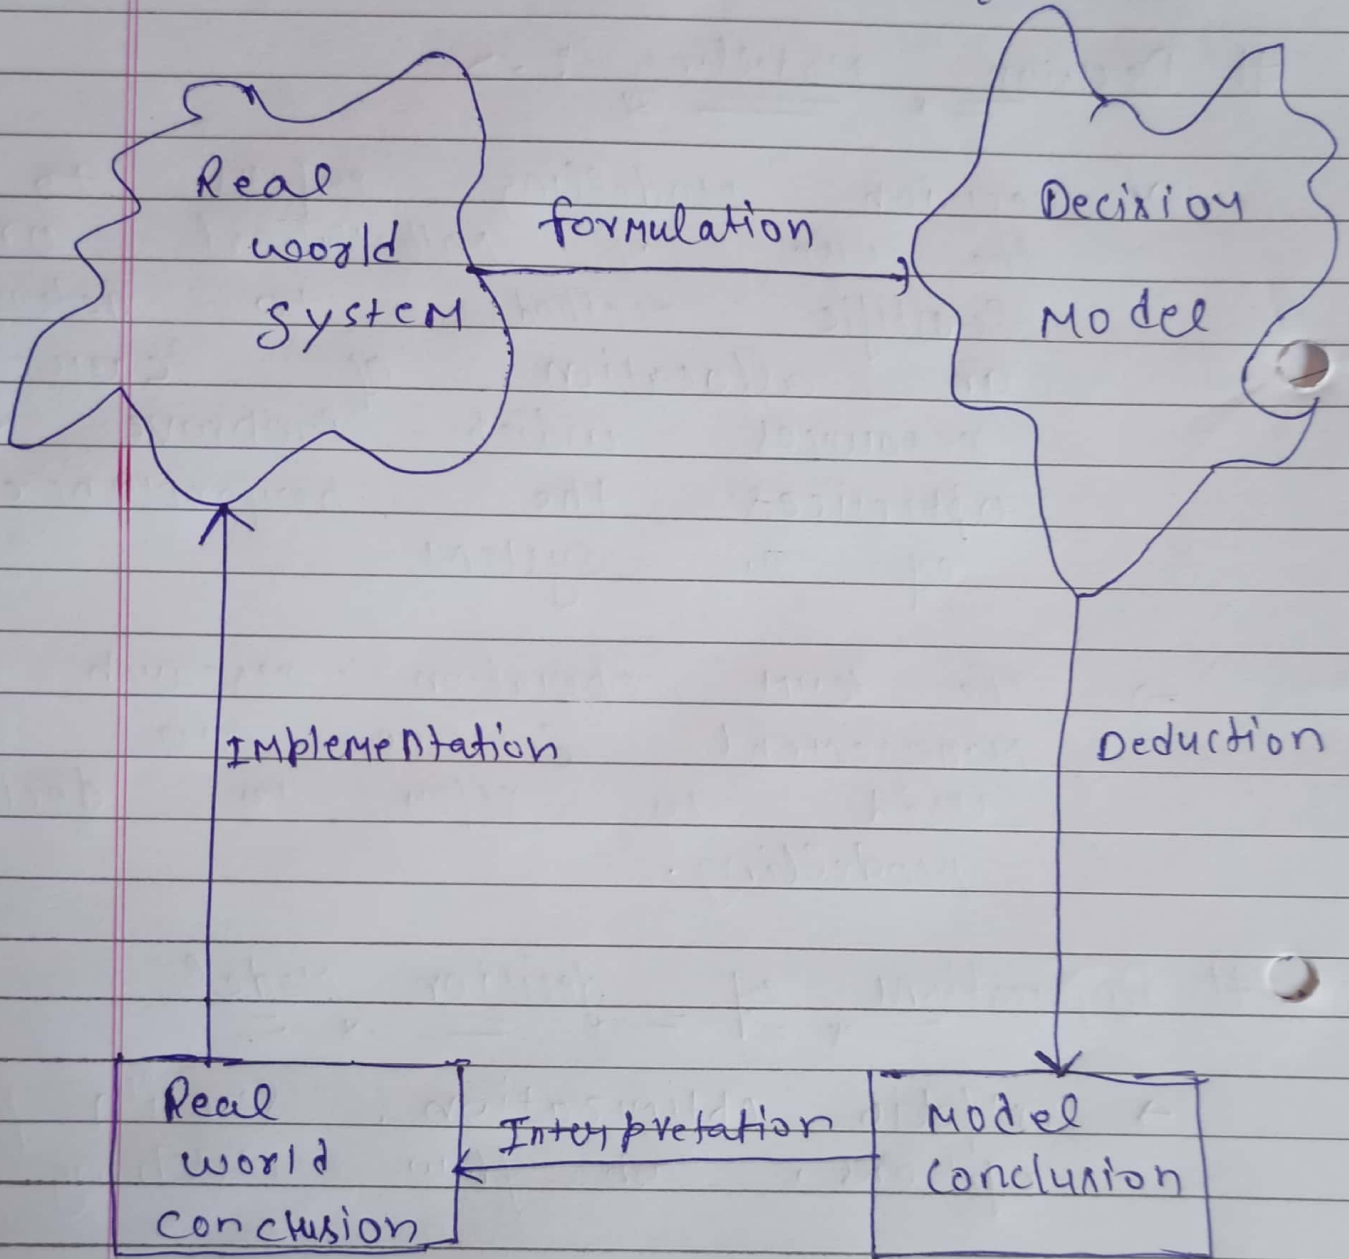 Real
world
System
formulation
Decision
Model
Implementation
Deduction
Real
world
conclusion
Interpretation
Model
conclusion